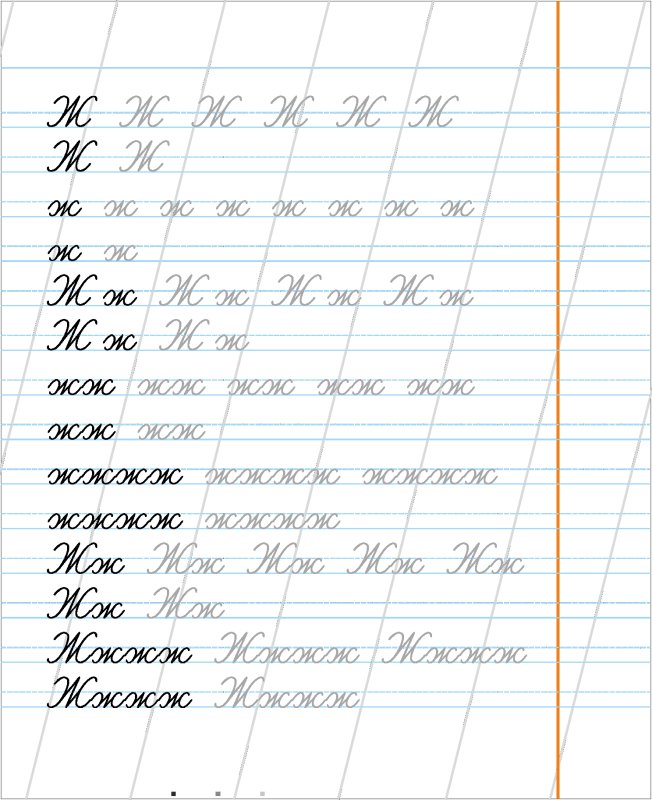 Ж Ж Ж Ж Ж Ж
Ж Ж
ж ж ж ж ж ж ж ж
ж ж
Ж ж Ж ж Ж ж Ж ж
Ж ж Ж ж
жж жж жж жж жж
жж жж
жжжж жжжж жжжж
жжжж жжжж
Жж Жж Жж Жж Жж
Жж Жж
Жжжж Жжжж Жжжж
Жжжж Жжжж